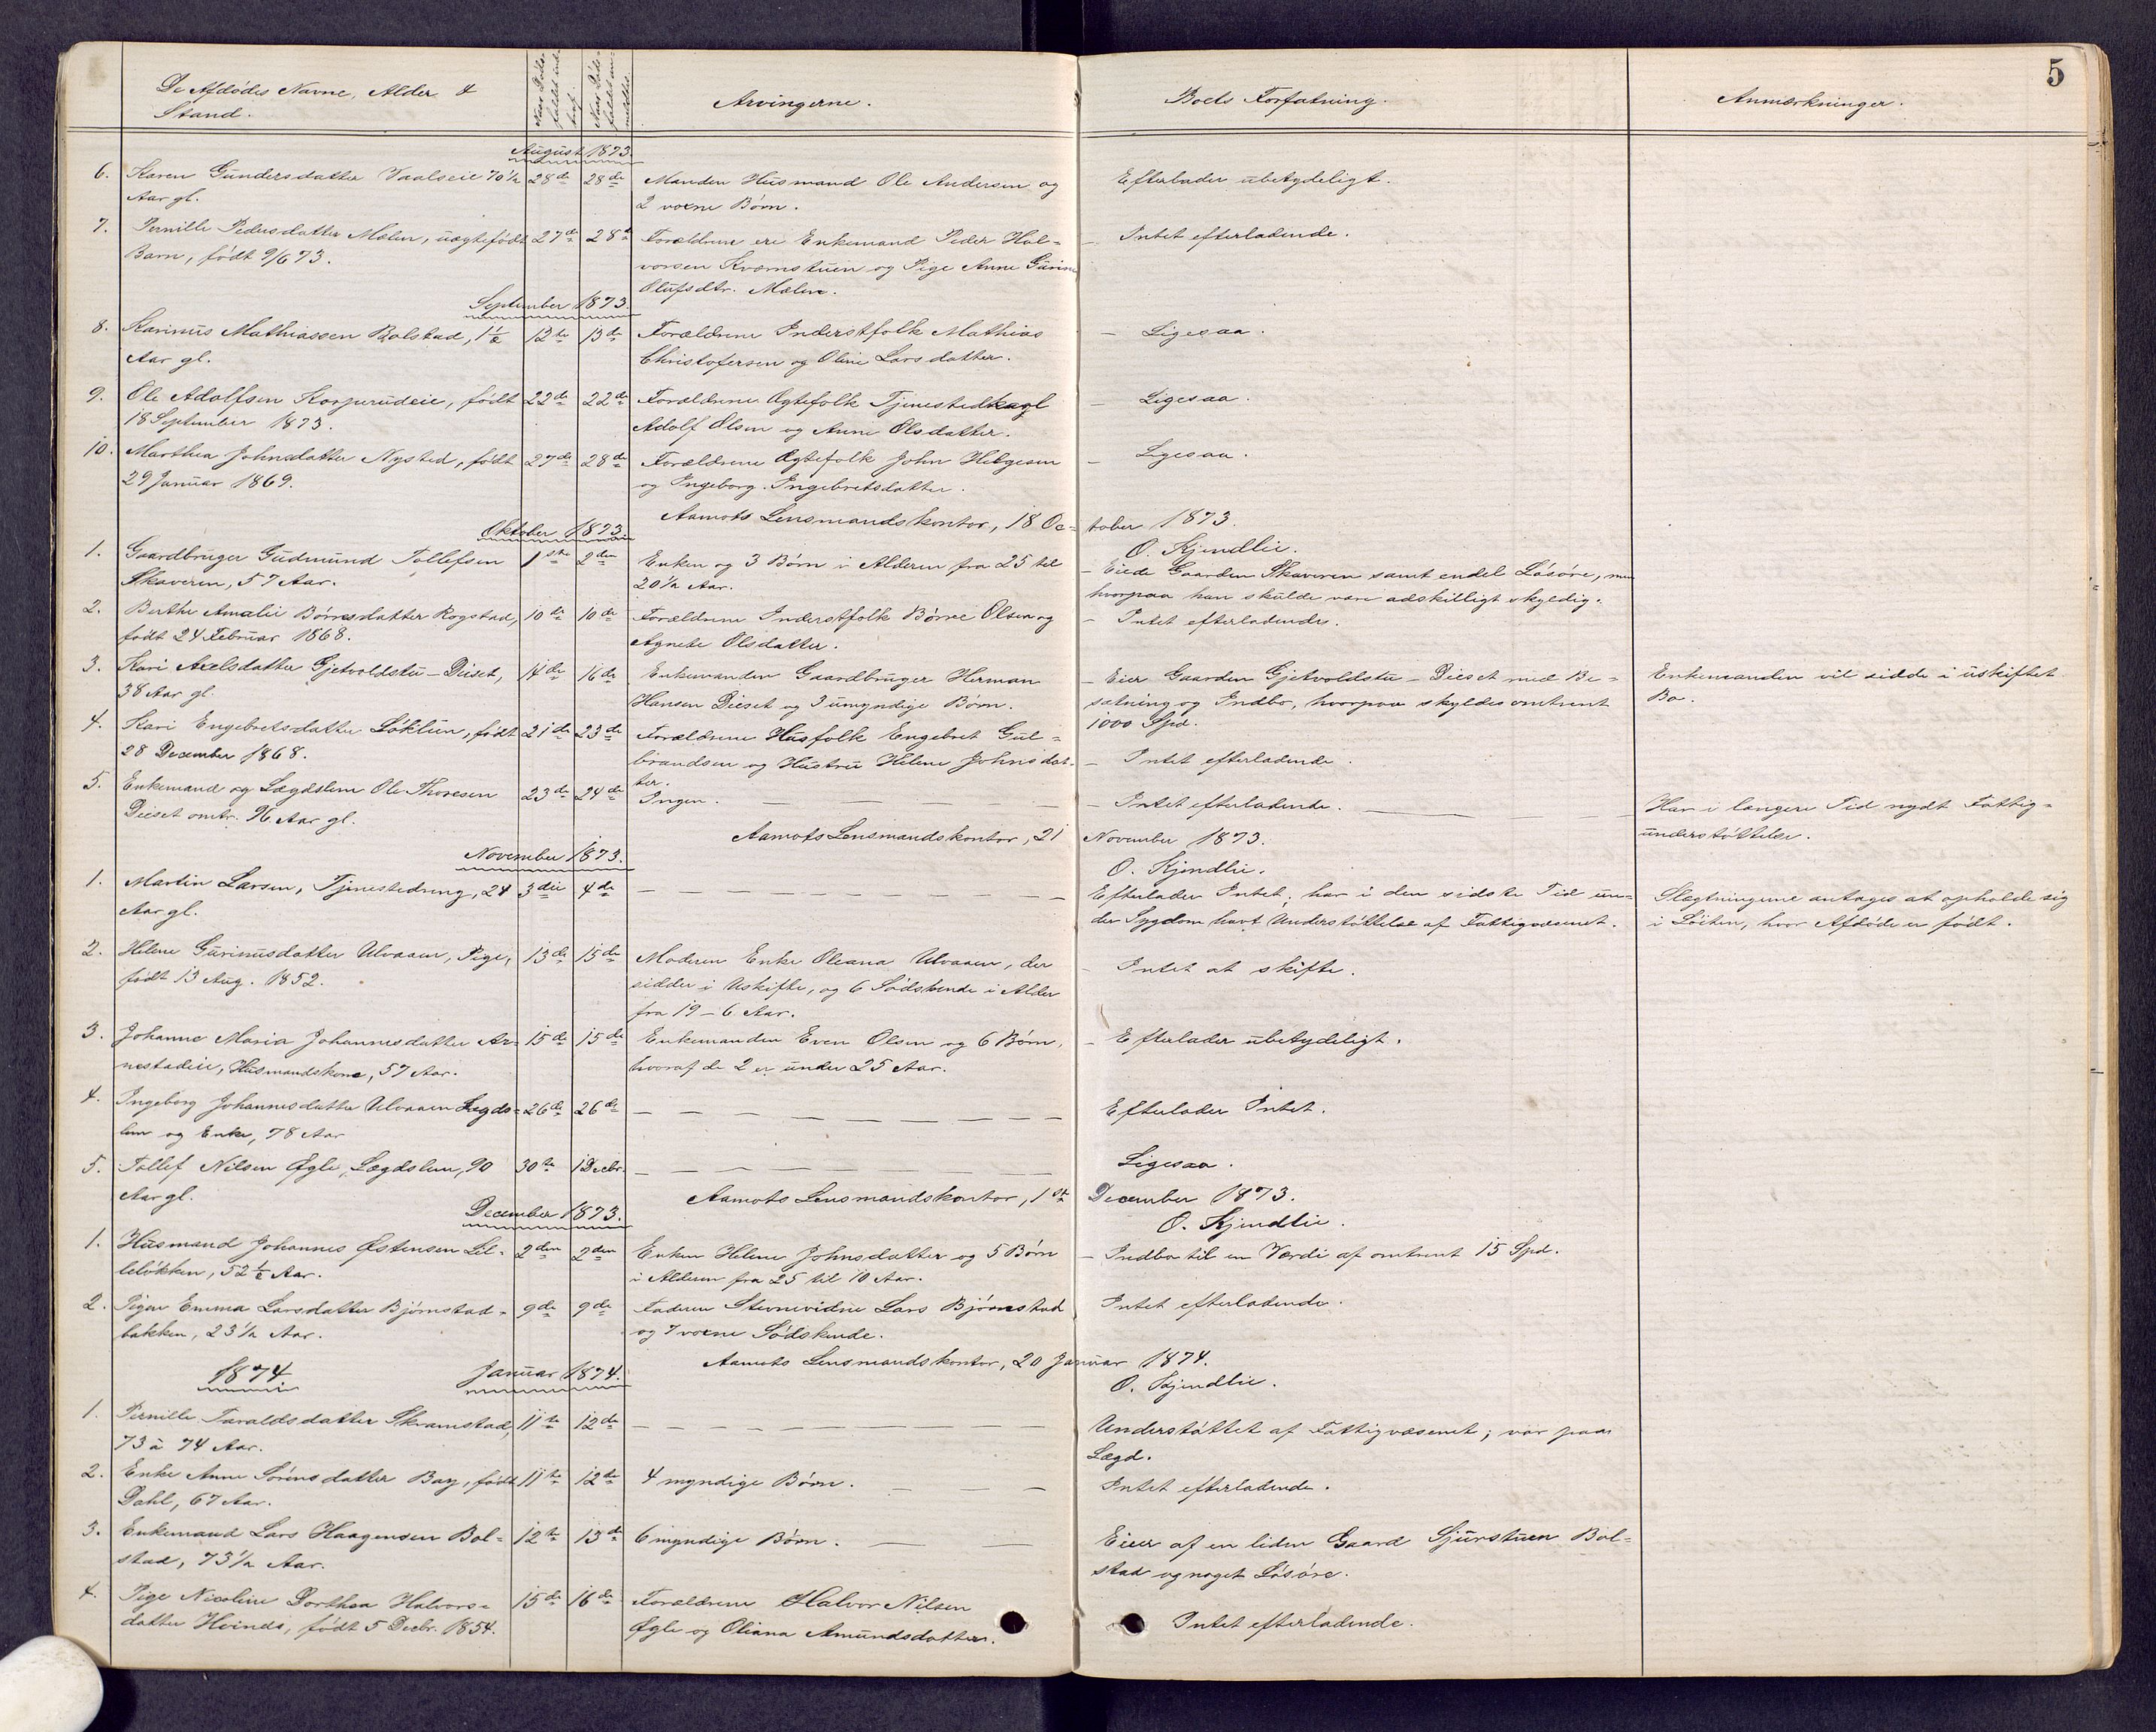 5
De Afdødes Navne, Alder &
Stand.
Naar Døds-
faldet ind-
traf.
Naar Døds-
faldet an-
meldtes.
Arvingerne.
Boets Forfatning.
Anmærkninger.
August 1873.
6. Karen Gundersdatter Vaalseie 70 1/2 28de 28de Manden Husmand Ole Andersen og Efterlader ubetydeligt.
Aar gl. 2 voxne Børn.
7. Pernille Pedersdatter Mælen, uægtefødt 27de 28de Forældrene ere Enkemand Peder Hal= – Intet efterladende.
Barn, født 9/6 73. vorsen Kvernstuen og Pige Anne Gurine
Olufsdtr. Mælen.
September 1873.
8. Karinus Mathiassen Bolstad, 1 1/2 12te 13de Forældrene Inderstfolk Mathias – Ligesaa.
Aar gl. Christofersen og Oline Larsdatter.
9. Ole Adolfsen Korperudeie, født 22de 22de Forældrene Ægtefolk Tjenestedkarl – Ligesaa.
18 September 1873. Adolf Olsen og Anne Olsdatter.
10. Marthea Johnsdatter Nysted, født 27de 28de Forældrene Ægtefolk John Helgesen – Ligesaa.
29 Januar 1869. og Ingeborg Ingebretsdatter.
Aamots Lensmandskontor, 18 Oc= tober 1873.
O. Kjendlie.
Oktober 1873.
1. Gaardbruger Gudmund Tollefsen 1ste 2den Enken og 3 Børn i Alderen fra 25 til – Eiede Gaarden Skaveren samt endel Løsøre, men
Skaveren, 57 Aar. 20 1/2 Aar. hvorpaa han skulde være adskilligt skyldig.
2. Berthe Amalie Børresdatter Rogstad, 10de 10de Forældrene Inderstfolk Børre Olsen og – Intet efterladende.
født 24 Februar 1868. Agnete Olsdatter.
3. Kari Axelsdatter Gjetvoldstu – Dieset, 14de 16de Enkemanden Gaardbruger Herman – Eier Gaarden Gjetvoldstu – Dieset med Be= Enkemanden vil sidde i uskiftet
38 Aar gl. Hansen Dieset og 3 umyndige Børn. sætning og Indbo, hvorpaa skyldes omtrent Bo.
1000 Spd.
4. Kari Engebretsdatter Løktun, født 21de 23de Forældrene Husfolk Engebret Gul=
28 December 1868. brandsen og Hustru Helene Johnsdat= – Intet efterladende.
ter.
5. Enkemand og Lægdslem Ole Thoresen 23de 24de Ingen. – – – – – Intet efterladende. – – – Har i længere Tid nydt Fattig=
Dieset omtr. 96 Aar gl. understøttelse.
Aamots Lensmandskontor, 21 November 1873.
O. Kjendlie.
November 1873.
1. Martin Larsen, Tjenestedreng, 24 3die 4de – – – – – – Efterlader Intet; har i den sidste Tid un= Slægtningene antages at opholde sig
Aar gl. der Sygdom havt Understøttelse af Fattigvæsenet. i Løiten, hvor Afdøde er født.
2. Helene Gurinusdatter Ulvaaen, Pige, 13de 15de Moderen Enke Oleana Ulvaaen, der – Intet at skifte.
født 13 Aug. 1852. sidder i Uskifte, og 6 Sødskende i Alder
fra 19 – 6 Aar.
3. Johanne Maria Johannesdatter Ar= 15de 15de Enkemanden Even Olsen og 6 Børn, – Efterlader ubetydeligt.
nestadeie, Husmandskone, 57 Aar. hvoraf de 2 er under 25 Aar.
4. Ingeborg Johannesdatter Ulvaaen Lægds= 26de 26de – – – – – – Efterlader Intet.
lem og Enke, 78 Aar
5. Tollef Nilsen Øgle, Lægdslem, 90 30te 1 Decbr. – – – – – – Ligesaa.
Aar gl. Aamots Lensmandskontor, 1ste December 1873.
O. Kjendlie.
December 1873.
1. Husmand Johannes Østensen Lil= 2den 2den Enken Helene Johnsdatter og 5 Børn – Indbo til en Værdi af omtrent 15 Spd.
leløkken, 52 1/2 Aar. i Alderen fra 25 til 10 Aar.
2. Pigen Emma Larsdatter Bjørnstad= 9de 9de Faderen Stevnevidne Lars Bjørnstad Intet efterladende.
bakken, 23 1/2 Aar. og 7 voxne Sødskende.
Aamots Lensmandskontor, 20 Januar 1874.
O. Kjendlie.
1874 Januar 1874.
1. Pernille Taraldsdatter Skramstad, 11te 12de – – – – – – Understøttet af Fattigvæsenet; var paa
73 à 74 Aar. Lægd.
2. Enke Anne Sørensdatter Bay, født 11te 12te 4 myndige Børn. – – – Intet efterladende.
Dahl, 67 Aar.
3. Enkemand Lars Haagensen Bol= 12te 13de 6 myndige Børn. – – Eier af en liden Gaard Sjurstuen Bol=
stad, 73 1/2 Aar. stad og noget Løsøre.
4. Pige Nicoline Dorthea Halvors= 15de 16de Forældrene Halvor Nilsen Intet efterladende.
datter Hvinde, født 5 Decbr. 1854. Øgle og Oliana Amundsdatter.